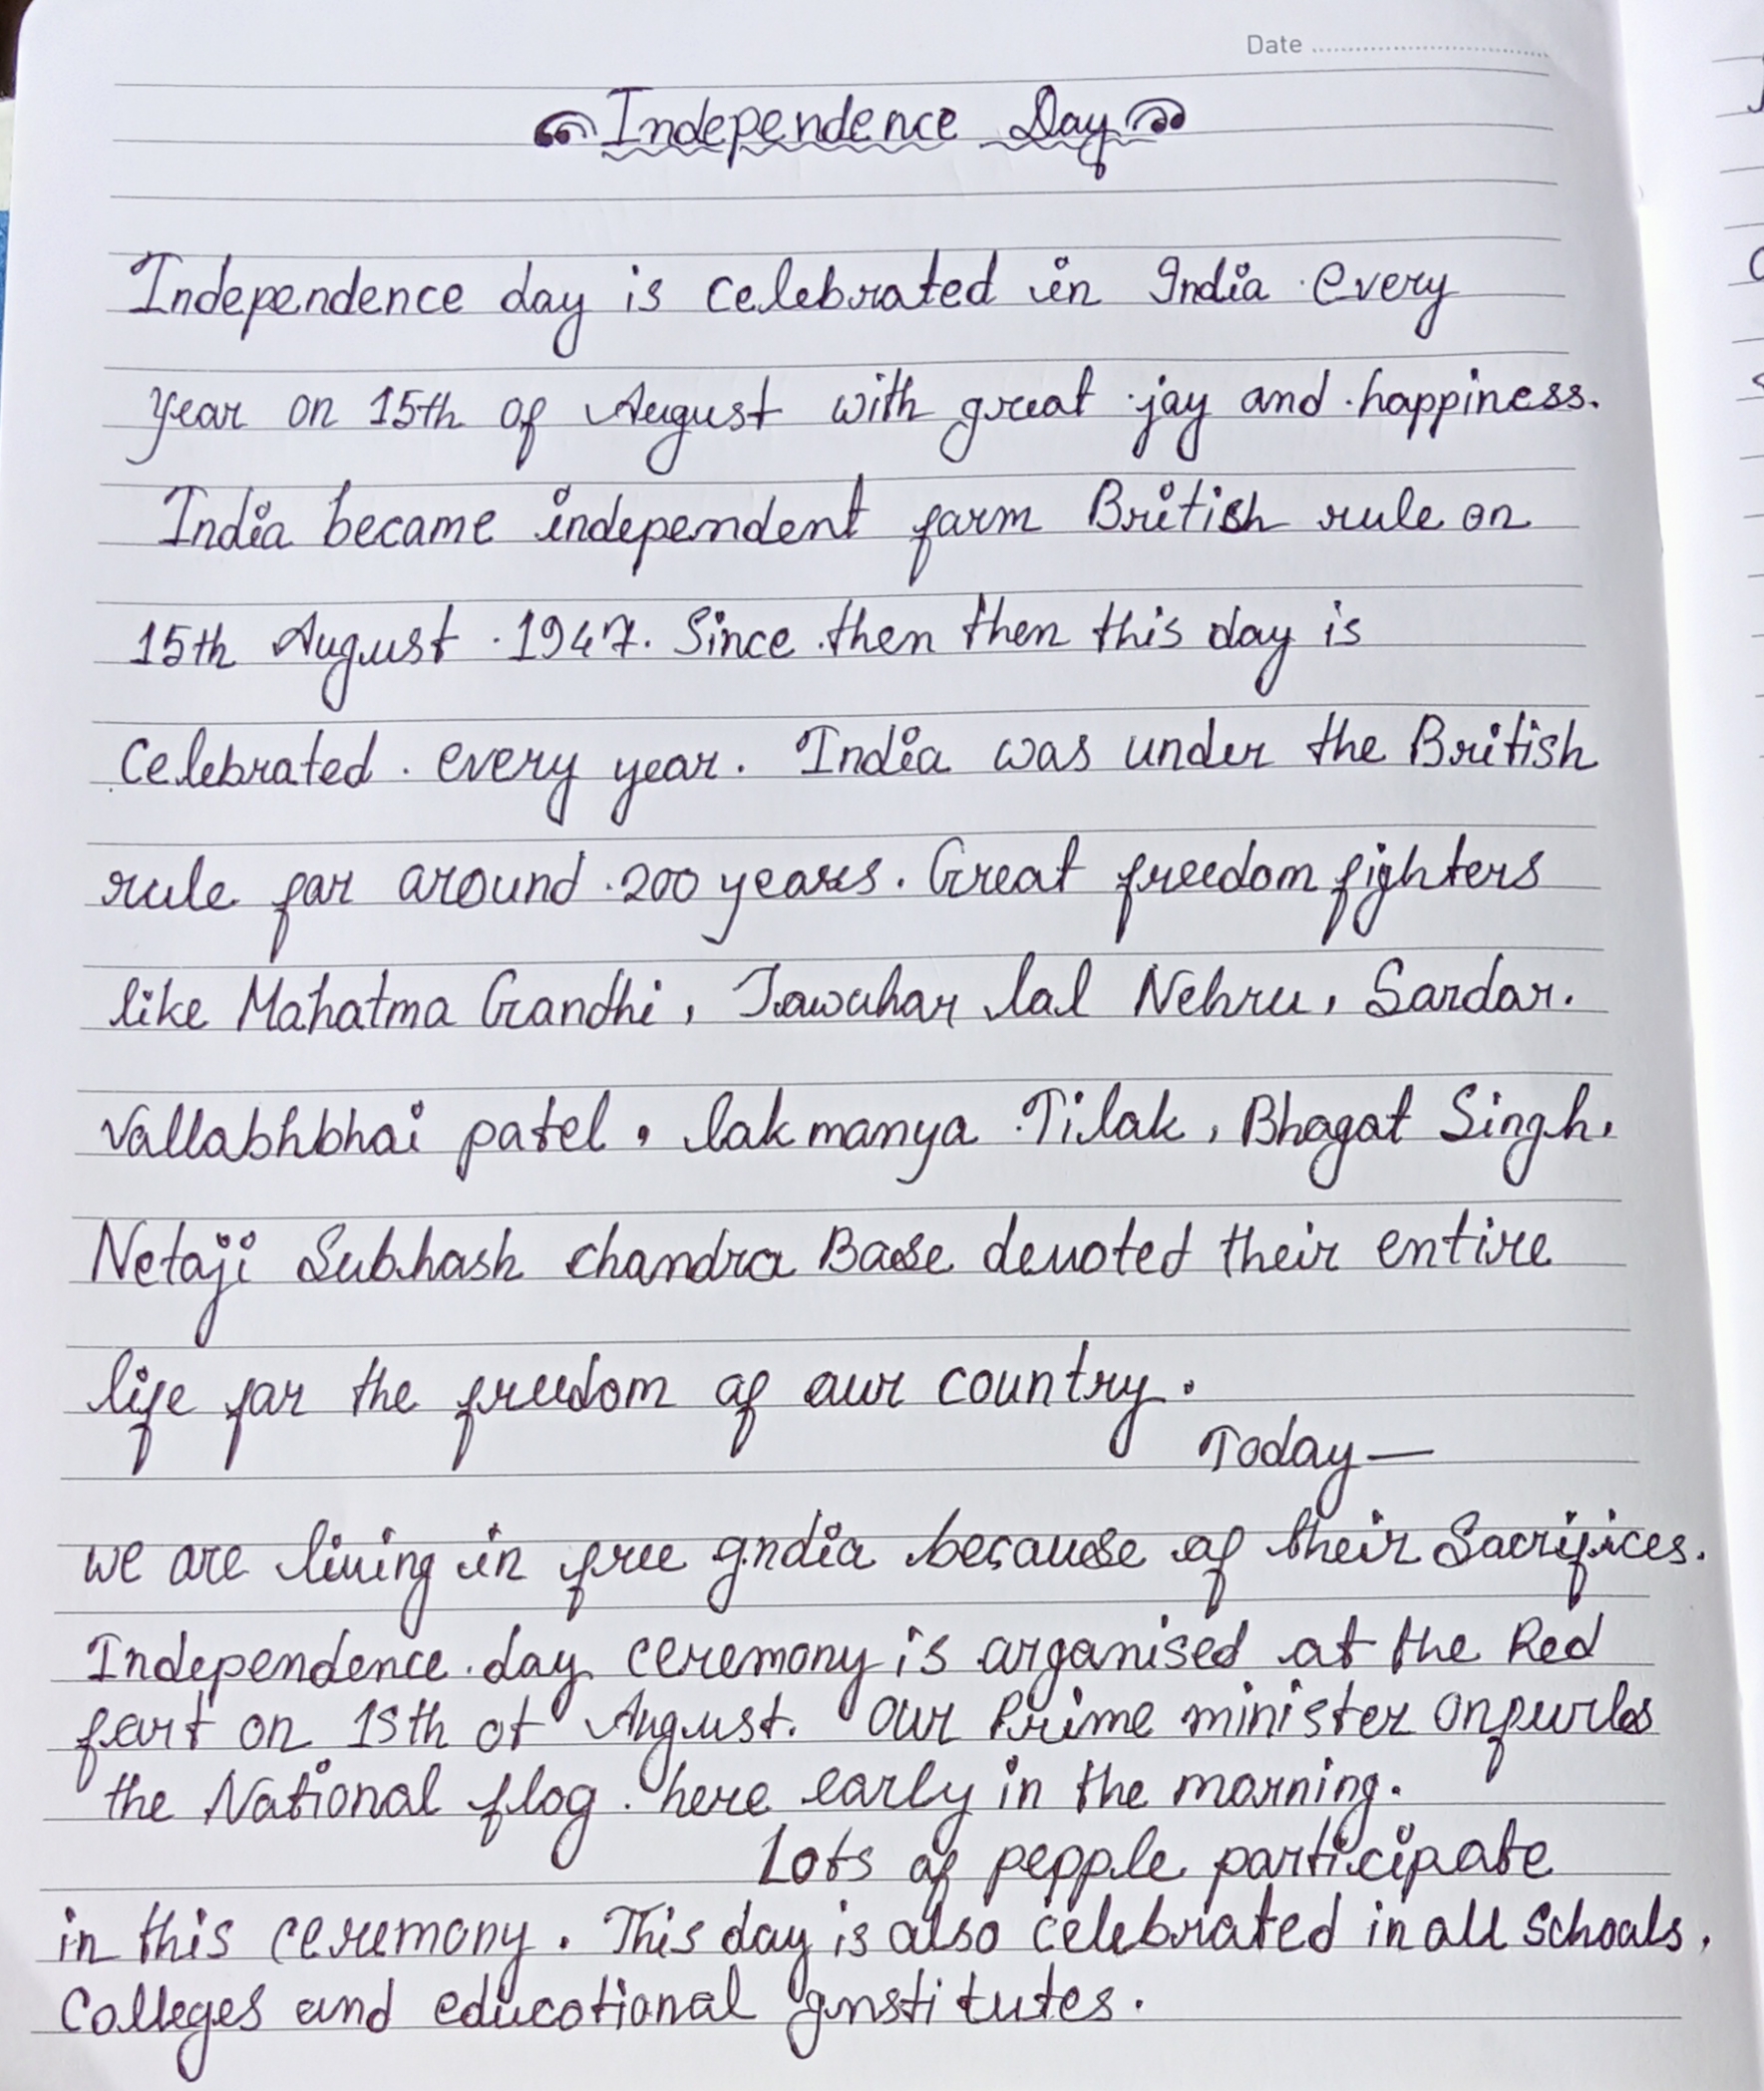 Date
Independence Day
Independence day is celebrated in India every
year on 15th of August with great joy and happiness.
India became independent farm British rule on
15th August 1947. Since then then this day is
Celebrated every year. India was under the British
rule for around 200 years. Great freedom fighters
like Mahatma Gandhi, Jawahar lal Nehru, Sardar.
Vallabhbhai patel, lakmanya Tilak, Bhagat Singh,
Netaji Subhash chandra Bose devoted their entire
life for the freedom of our country.
Today—
we are living in free India because of their Sacrifices.
Independence day ceremony is organised at the Red
fort on 15th of August. Our Prime minister onfurls
the National flag here early in the morning.
Lots of pepple participate
in this ceremony. This day is also celebrated in all Schools,
Colleges and educational Institutes.